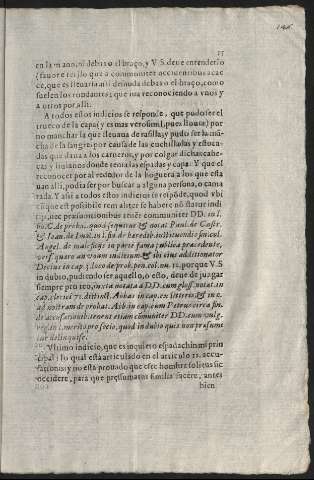 15
en la mano, ni debaxo el braço, y V.S. deue entenderlo
ce, que es lleuarla ni desnuda debaxo el braço, como
suelen los rondantes; que iua reconociendo a vnos y
a otros por alli.
A todos estos indicios se responde, que pudo ser el
trueco de la capa (y es mas verosimil, pues llouia) por
no manchar la que lleuaua de rasilla, y pudo ser la mã-
cha de sangre por causa de las cuchilladas y estoca-
das que daua a los carneros, y por colgar dichas cabe-
ças y liuianos donde tenia las espadas y capa. Y que el
reconocer por al rededor de la hoguera a los que esta
uan alli, podia ser por buscar a alguna persona, o cama
rada. Y assi a todos estos indicios se respõde, quod vbi
cũque est possibile rem aliter se habere nõ statur indi
tijs, nec præsumptionibus tenẽt communiter DD. in l.
& Ioan. de Imol. in l.
Angel. de maleficijs in parte fama publica præcedente,
vers. quæro an vnum inditium & ibi eius additionator
Decius in cap. 3. loco de prob. pen. col. nu. 11. porque V.S
in dubio, pudiendo ser aquello, o esto, deue de juzgar
siempre pro reo, iuxta notata à DD. cum gloss. notat. in
cap. clerici 81. distinct. Abbas in cap. en litteris & in c.
ad nostram de probat. Alb. in cap. cum Petrus circa fin.
de accusationib. tenent etiam cõmuniter DD. cum vulg.
reg. in l. merito pro socio, quod in dubio quis non præsumi
tur deliquisse.
Vltimo indicio, que es inquieto espadachin mi prin
cipal; lo qual está articulado en el articulo 11. accu-
sationis; y no está prouado que este hombre solitus sit
occidere, para que præsumatur similia facere, antes
bien